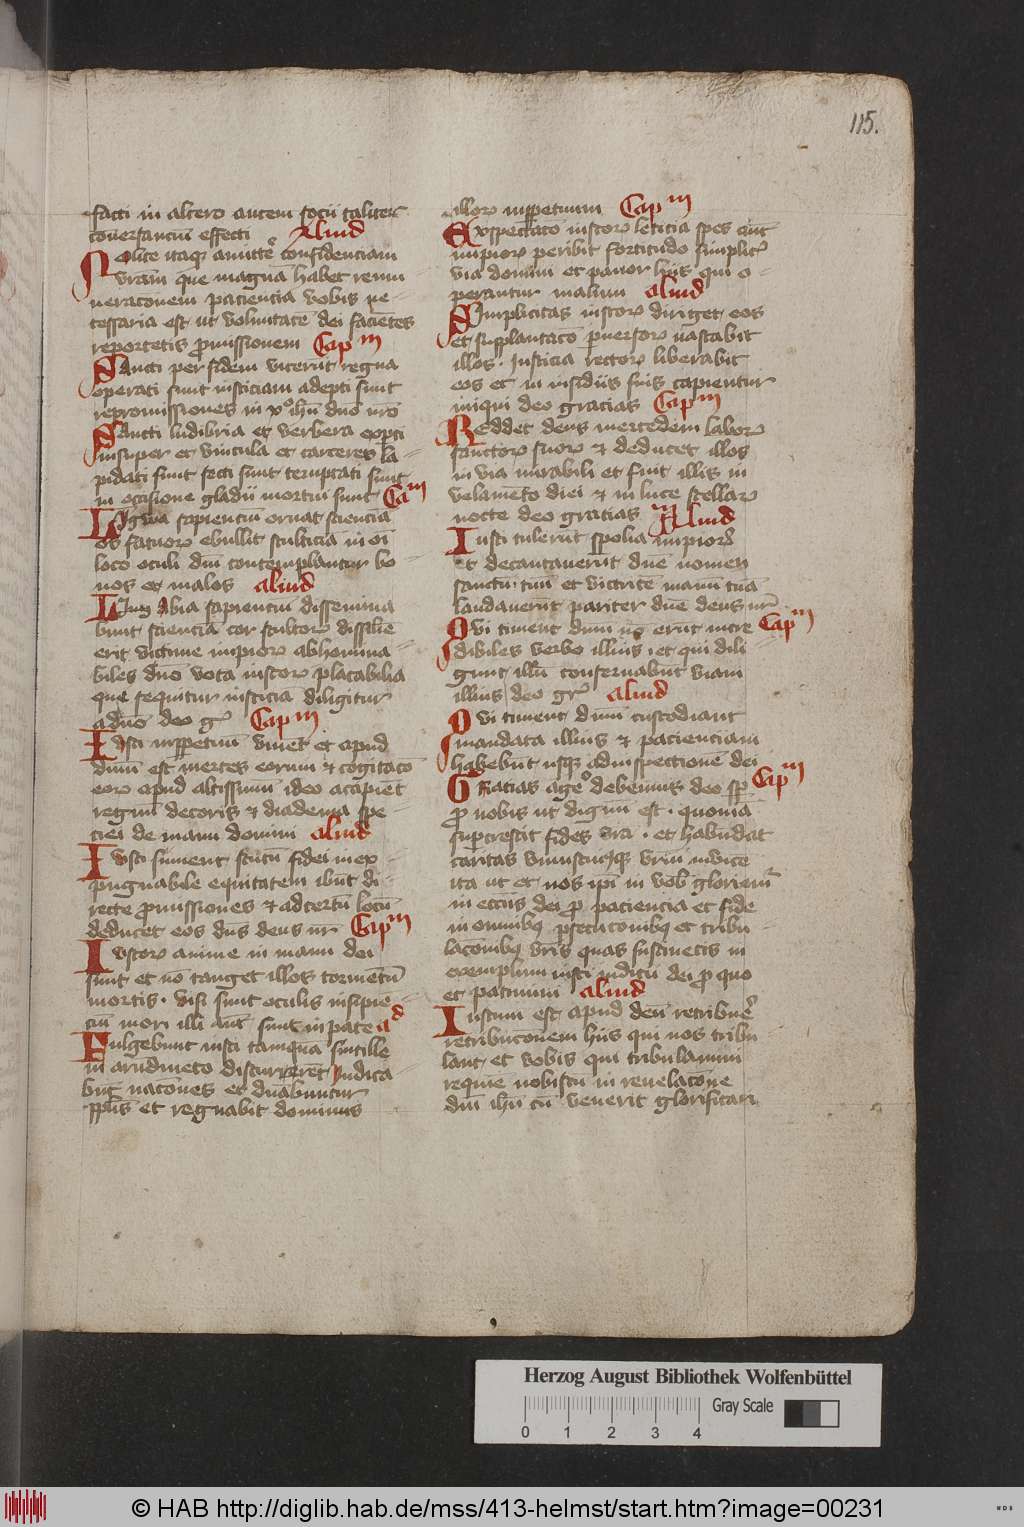 115.
facti in altero autem socii taliter
conversanciu͞ effecti Aliud
Nolite itaqꝫ amitte͛ confidenciam
vr͞am que magna͞ habet remu
neraco͞nem paciencia vobis ne-
cessaria est ut volu͞ntate͞ dei facie͞tes
reportetis ꝓmissionem Capᵐ
Sancti per fidem vicer͞ut regna
operati sunt iusticiam adepti sunt
repromissiones in xᵒ ihu͞ dn͞o nr͞o
Sancti ludibria et verbera exp͞ti
insuper et vincula et carceres la-
pidati sunt secti sunt temptati sunt
in occisione gladii mortui sunt Caᵐ
Lingwa sapienciu͞ ornat scie͞ncia͞
os fatuorꝝ ebullit stulticia͞ in oi͞
loco oculi dn͞i contemplantur bo-
nos et malos aliud
Labia sapienciu͞ dissemina
bunt scie͞ncia͞ cor stultorꝝ dissi͞le
erit victime impiorꝝ abhomina-
biles dn͞o vota iustorꝝ placabilia
que sequitur iusticia diligitur
a dn͞o deo gr͛ Capᵐ
Iusti inp͞petuu͞ vive͞t et apud
dn͞m est merces eorum ⁊ cogitaco͞
eorꝝ apud altissimu͞ ideo accipie͞t
regnu͞ decoris ⁊ diadema spe-
ciei de manu domini aliud
Iusti sument scutu͞ fidei inex-
pugnabile equitatem ibu͞t di-
recte ꝓmissiones ⁊ ad certu͞ locu͞
deducet eos dn͞s deus nr͞ Capᵐ
Iustorꝝ anime in manu dei
sunt et no͞ tanget illos torme͞tu͞
mortis . visi sunt oculis insipie-
ciu͞ mori illi au͞t sunt in pace ad
Fulgebunt iusti tamqua͞ sintille
in aru͞dineto discurrere͞t iudica-
bu͞t naco͞nes et dn͞abuntur
pp͞lis et regnabit dominus
illorꝝ inp͞petuum Capᵐ
Exspectaco͞ iustorꝝ leticia spes au͞t
impiorꝝ peribit fortitudo simplic͛
via domini et pavor hiis qui o-
perantur malum aliud
Simplicitas iustorꝝ diriget eos
et supplantaco͞ perversorꝝ vastabit
illos . Iusticia rectorꝝ liberabit
eos et in insidiis suis capientur
iniqui deo gracias Capᵐ
Reddet deus mercedem laborꝝ
sanctorꝝ suorꝝ ⁊ deducet illos
in via mirabili et fuit illis in
velame͞to diei ⁊ in luce stellarꝝ
nocte deo gracias Aliud
Iusti tuleru͞t spolia impiorꝝ
et decantaveru͞t dn͞e nomen
sanctu͞ tuu͞ et victrice͞ manu͞ tua͞
laudaveru͞t pariter dn͞e deus nr͞
Qui timent dn͞m no͞ eru͞t incre Capᵐ
dibiles verbo illius . et qui dili
gunt illu͞ conservabu͞t viam
illius deo gr͛ aliud
Qui timent dn͞m custodiant
mandata illius ⁊ pacienciam
habebu͞t usqꝫ ad inspectione͞ dei
Gracias age͛ debemus deo sp͞ Capᵐ
ꝓ nobis ut dignu͞ est . quonia͞
supcrescit fides vr͞a . et habu͞dat
caritas uniuscuiqꝫ vr͞m invice͞
ita ut et nos ip͞i in vob͞ gloriem͛
in ecc͞iis dei ꝓ paciencia et fide
in omnibꝫ ꝑsecucio͞nibꝫ et tribu-
laco͞nibꝫ vr͞is quas sustinetis in
exemplum iusti iudicii dei ꝓ quo
et patimini aliud
Iustum est apud deu͞ retribue͛
retribuco͞nem hiis qui nos tribu
lant . et vobis qui tribulamini
requie͞ nobiscu͞ in revelaco͞ne
dn͞i ihu͞ cu͞ venerit glorificari
Herzog August Bibliothek Wolfenbüttel
Gray Scale
0 1 2 3 4
© HAB http://diglib.hab.de/mss/413-helmst/start.htm?image=00231